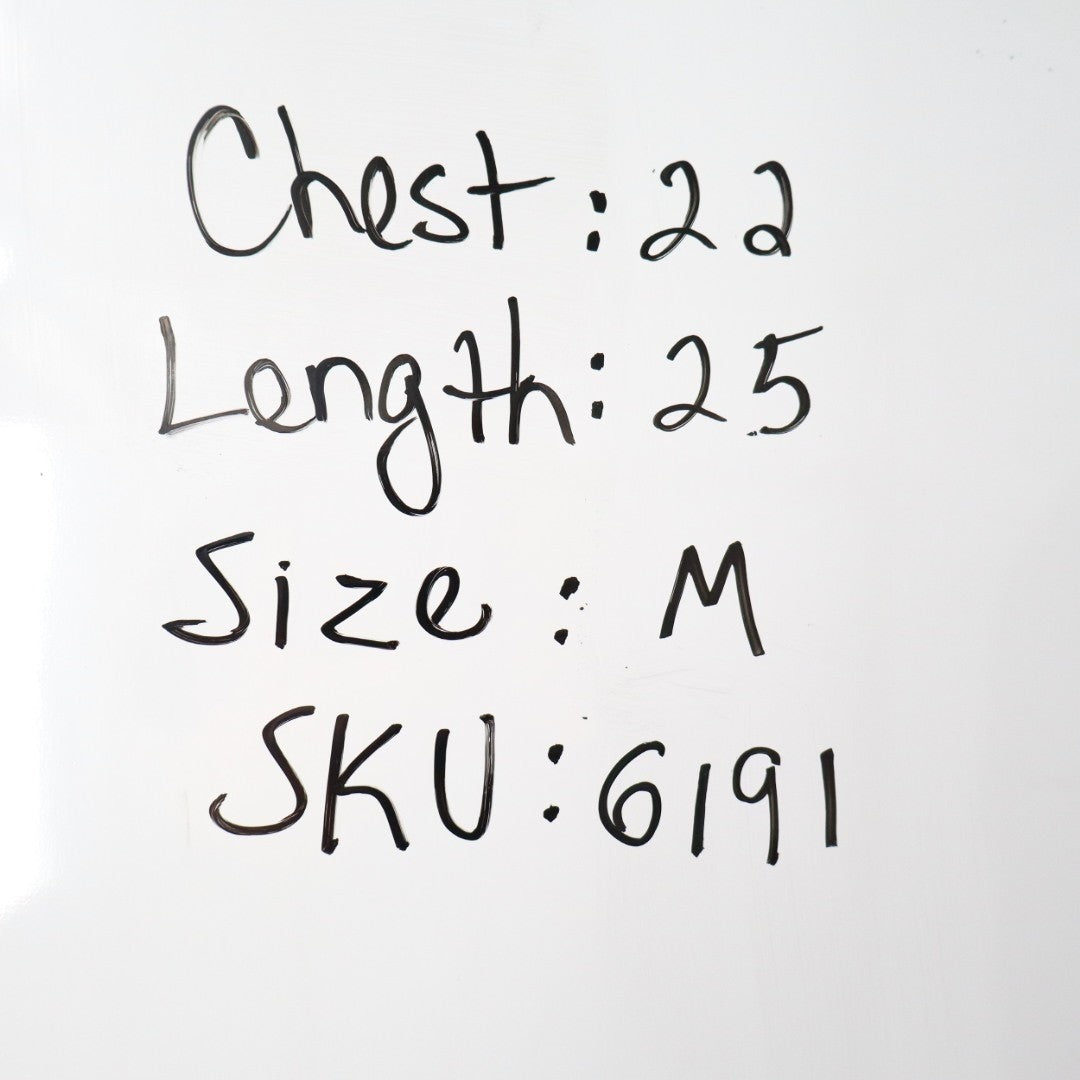 Chest: 22
Length: 25
Size: M
SKU: 6191